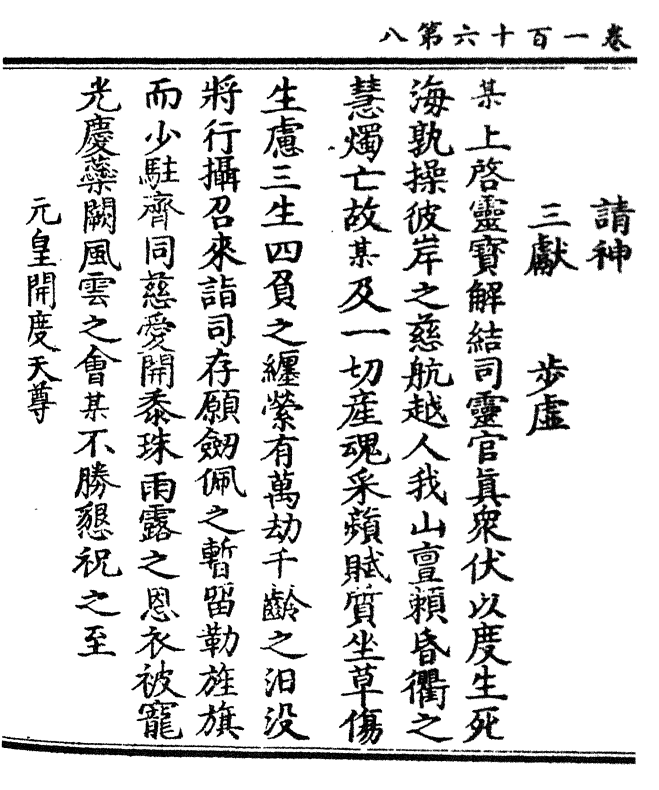 卷一百十六第八
請神
三獻　步虛
某上啓靈寳解結司靈官眞衆伏以度生死
海孰操彼岸之慈航越人我山亶賴昏衢之
慧燭亡故某及一切産魂采蘋賦質坐草傷
生慮三生四負之纏縈有萬劫千齡之汨没
將行攝召來詣司存願劒佩之暫留勒旌旗
而少駐齊同慈愛開黍珠雨露之恩衣被寵
光慶蘂闕風雲之會某不勝懇祝之至
元皇開度天尊